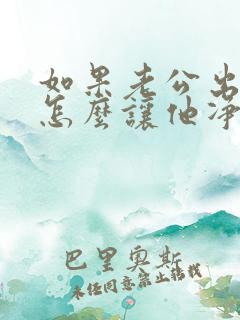 如果老公出
怎麼讓他淨
巴里奧斯
未經同意禁止轉載